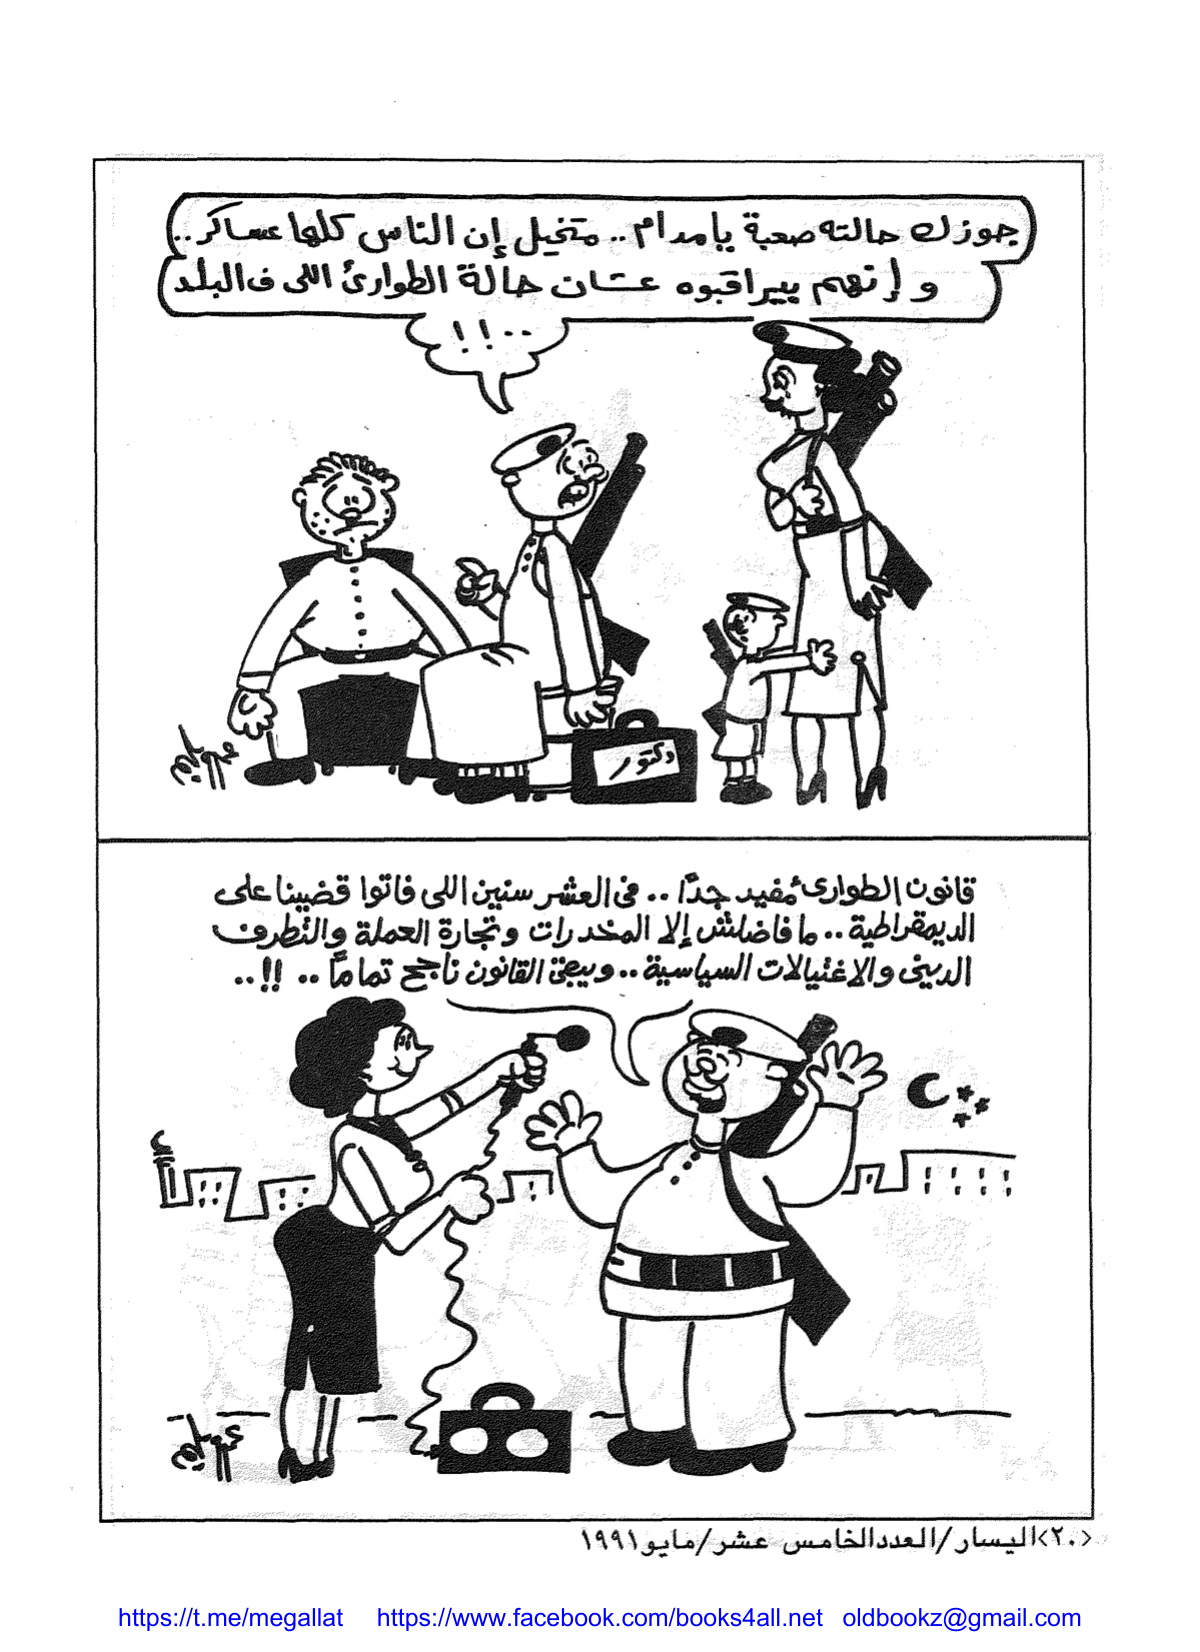 جوزك حالته صعبة يا مدام.. متخيل إن الناس كلها عساكر..
و إنهم بيراقبوه عشان حالة الطوارئ اللى ف البلد
..!!
دكتور
قانون الطوارئ مُفيد جدًا.. فى العشر سنين اللى فاتوا قضينا على
الديمقراطية.. ما فاضلش إلا المخدرات وتجارة العملة والتطرف
الدينى والاغتيالات السياسية.. ويبقى القانون ناجح تمامًا.. !!..
<٢٠>اليسار/العدد الخامس عشر/مايو ١٩٩١
https://t.me/megallat https://www.facebook.com/books4all.net oldbookz@gmail.com